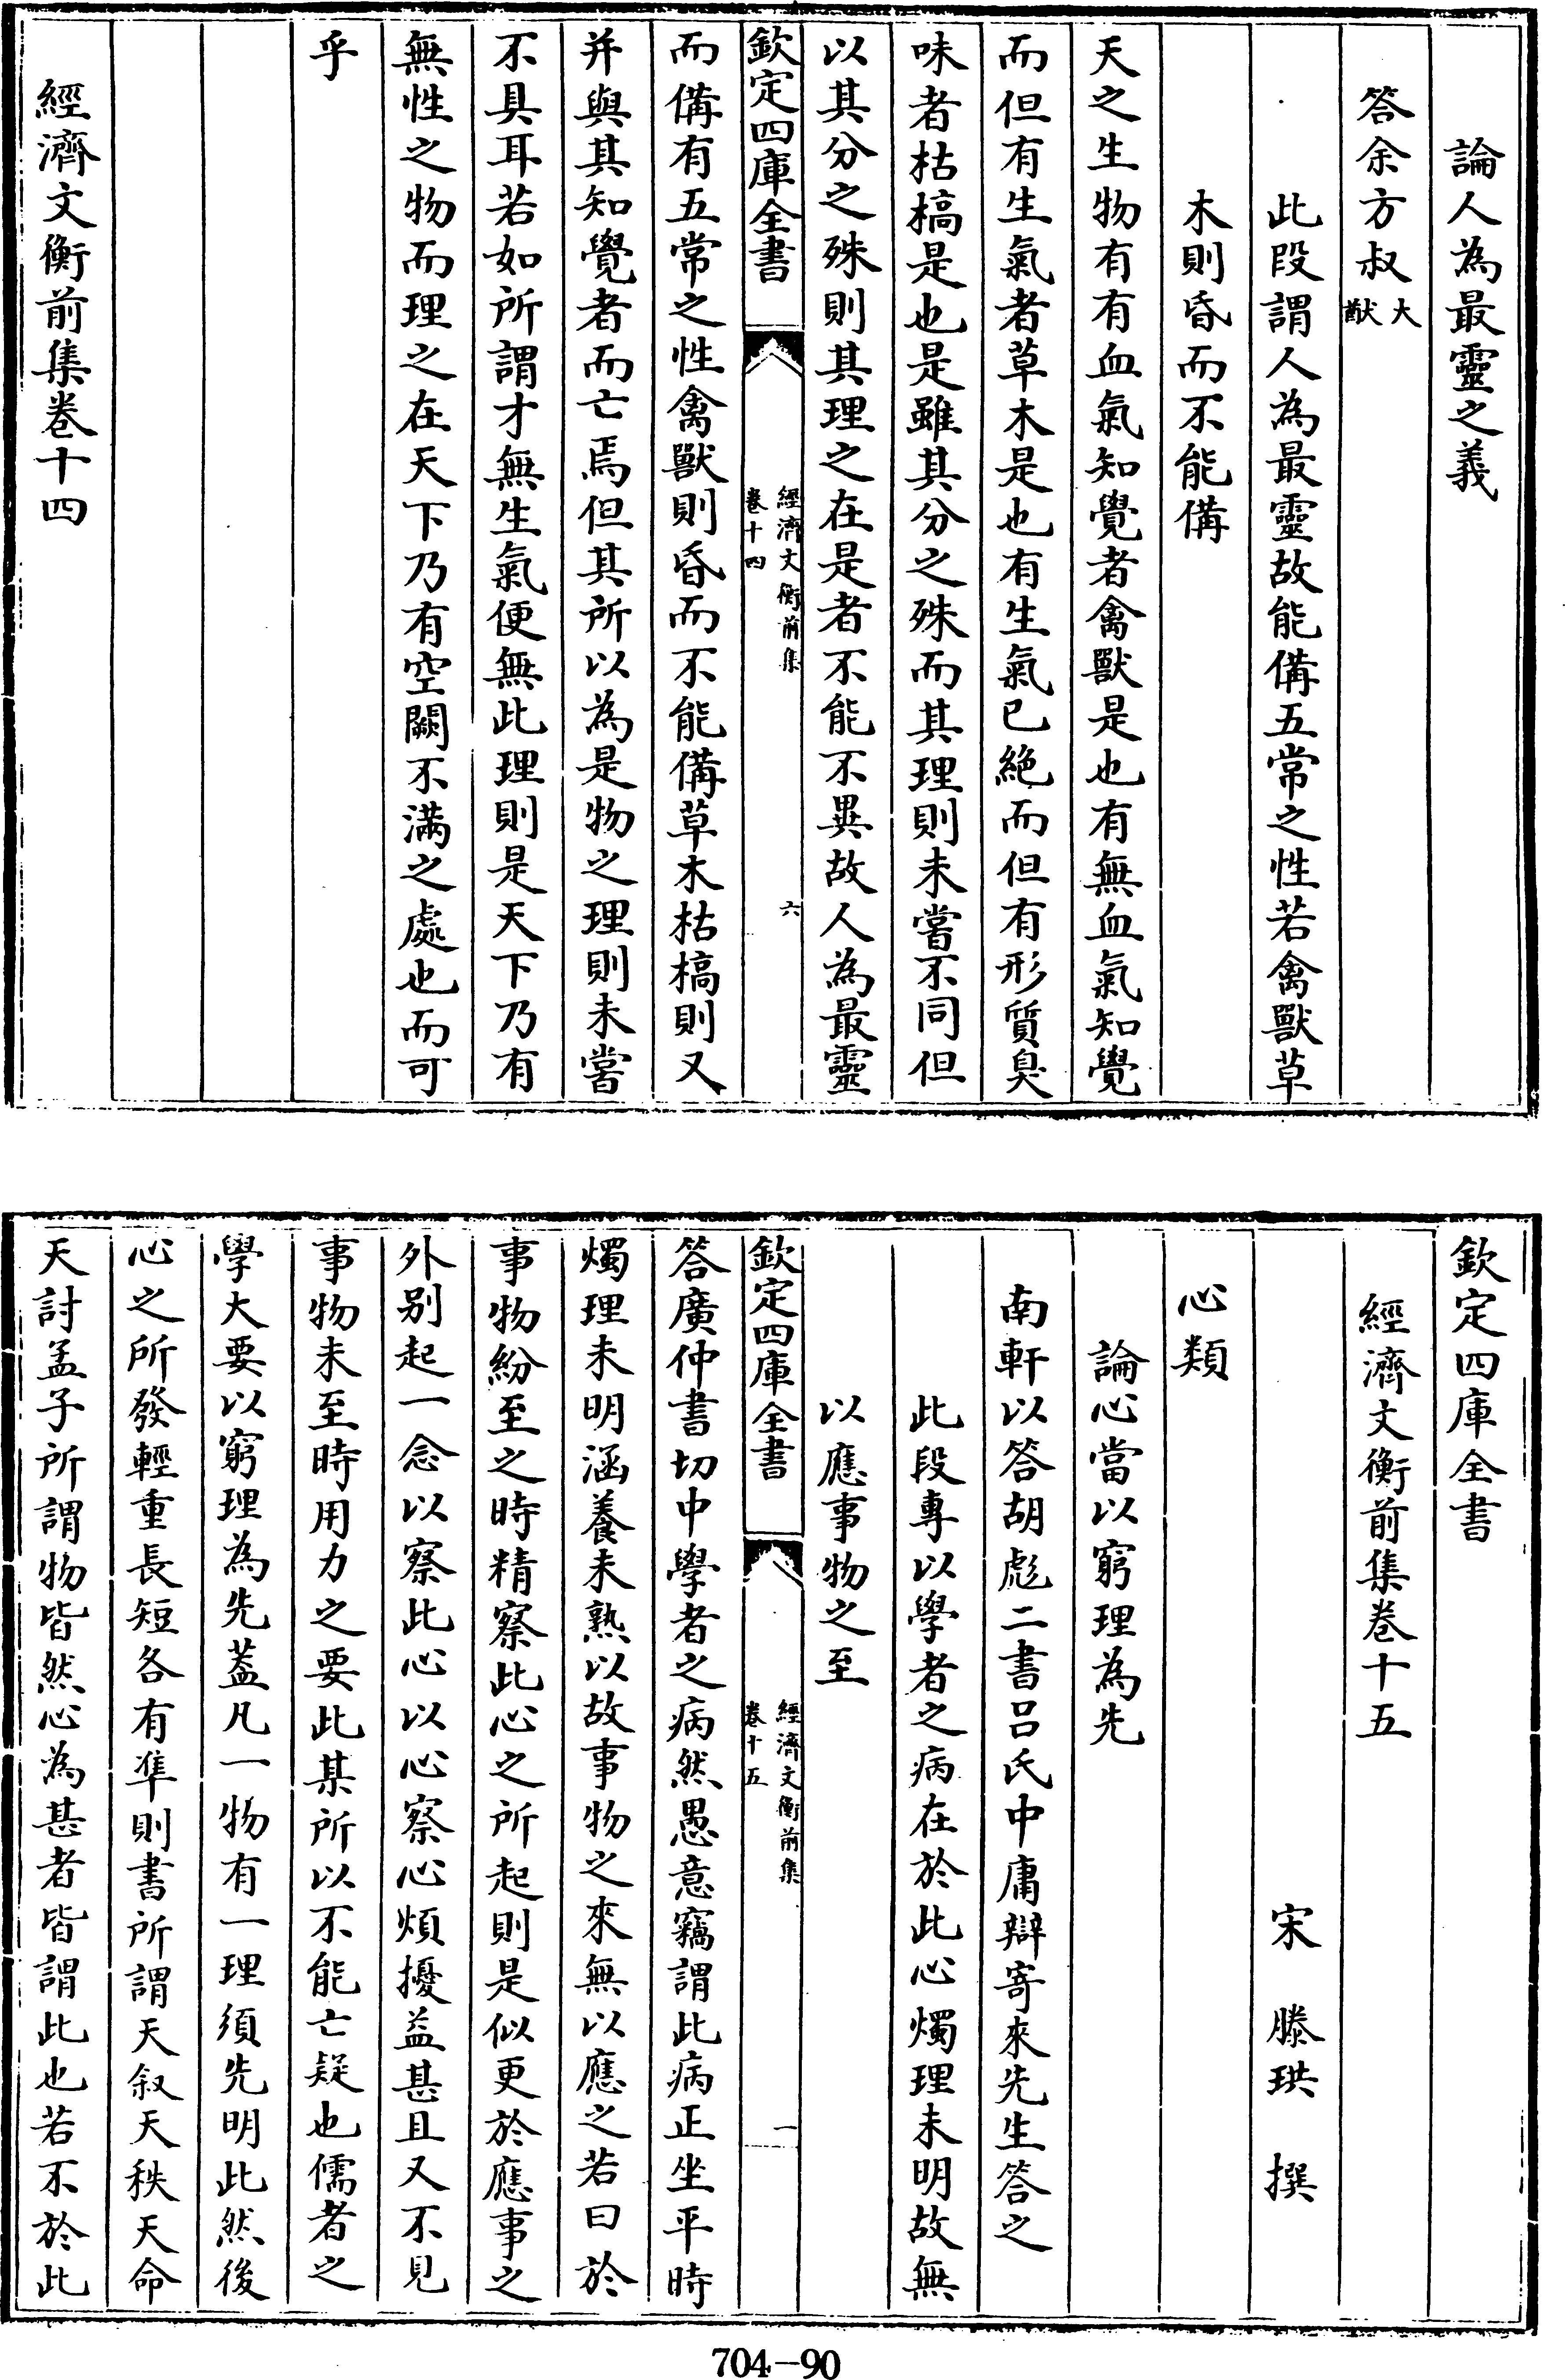 論人為最靈之義
答余方叔大猷
此段謂人為最靈故能備五常之性若禽獸草
木則昏而不能備
天之生物有有血氣知覺者禽獸是也有無血氣知覺
而但有生氣者草木是也有生氣已絶而但有形質臭
味者枯槁是也是雖其分之殊而其理則未嘗不同但
以其分之殊則其理之在是者不能不異故人為最靈
欽定四庫全書
經濟文衡前集
卷十四
六
而備有五常之性禽獸則昏而不能備草木枯槁則又
并與其知覺者而亡焉但其所以為是物之理則未嘗
不具耳若如所謂才無生氣便無此理則是天下乃有
無性之物而理之在天下乃有空闕不滿之處也而可
乎
經濟文衡前集卷十四
欽定四庫全書
經濟文衡前集卷十五
宋 滕珙 撰
心類
論心當以窮理為先
南軒以答胡彪二書吕氏中庸辯寄來先生答之
此段專以學者之病在於此心燭理未明故無
以應事物之至
欽定四庫全書
經濟文衡前集
卷十五
一
答廣仲書切中學者之病然愚意竊謂此病正坐平時
燭理未明涵養未熟以故事物之來無以應之若曰於
事物紛至之時精察此心之所起則是似更於應事之
外别起一念以察此心以心察心煩擾益甚且又不見
事物未至時用力之要此某所以不能亡疑也儒者之
學大要以窮理為先葢凡一物有一理須先明此然後
心之所發輕重長短各有凖則書所謂天叙天秩天命
天討孟子所謂物皆然心為甚者皆謂此也若不於此
704-90